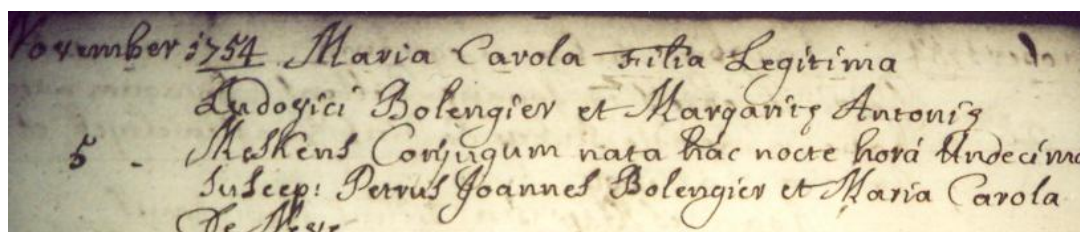 November 1754 Maria Carola Filia Legitima
Ludovici Bolengier et Margaritæ Antoniæ
5 - Meskens Conjugum nata hac nocte horâ Undecima
Suscep: Petrus Joannes Bolengier et Maria Carola
De